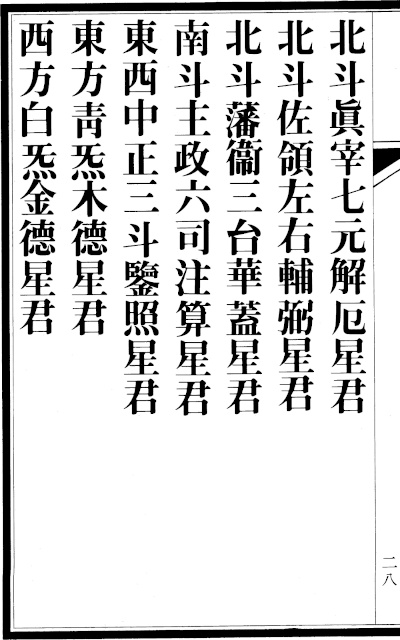 北斗眞宰七元解厄星君
北斗佐領左右輔弼星君
北斗藩衞三台華蓋星君
南斗主政六司注算星君
東西中正三斗鑒照星君
東方靑炁木德星君
西方白炁金德星君
二八